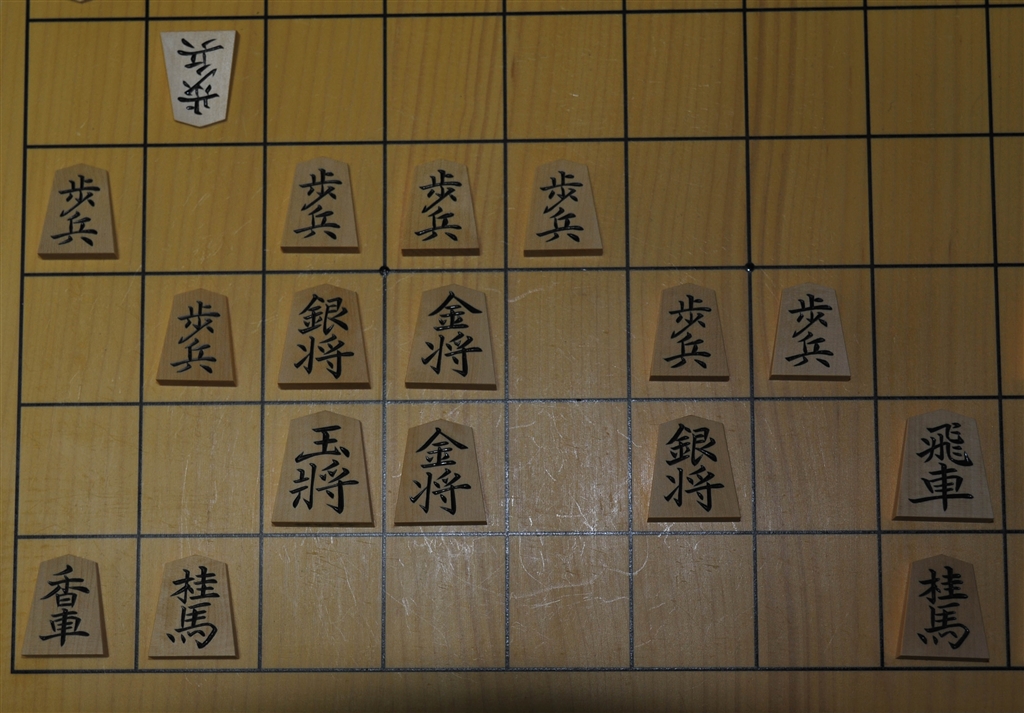 歩兵
歩兵
歩兵
歩兵
歩兵
歩兵
銀将
金将
歩兵
歩兵
玉將
金将
銀将
飛車
香車
桂馬
桂馬